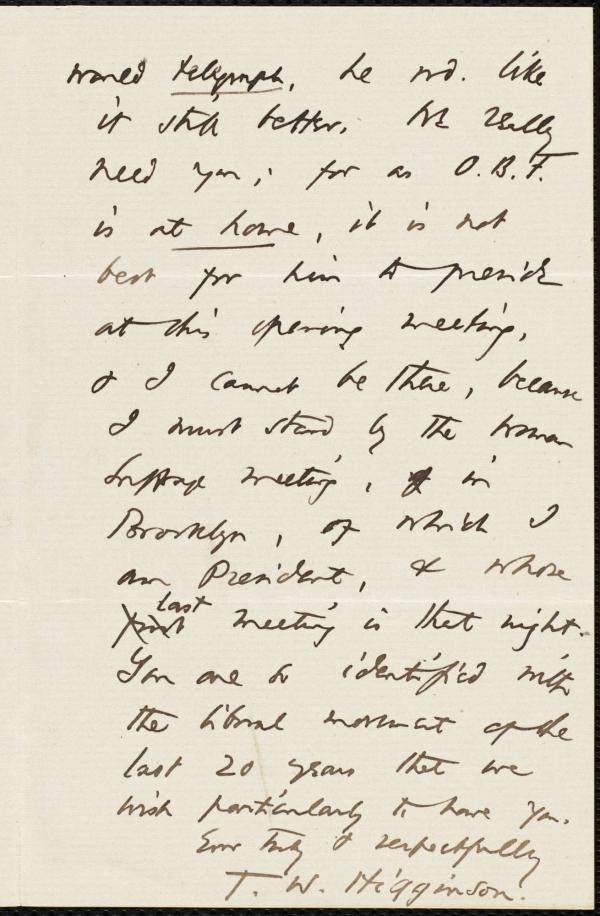 would telegraph, he wd. like
it still better. We really
need you; for as O.B.F.
is at home, it is not
best for him to preside
at this opening meeting,
& I cannot be there, because
I must stand by the woman
Suffrage meeting, in
Brooklyn, of which I
am President, & whose
last
first meeting is that night.
You are so identified with
the liberal movement of the
last 20 years that we
wish particularly to have you.
Ever truly & respectfully
T. W. Higginson.